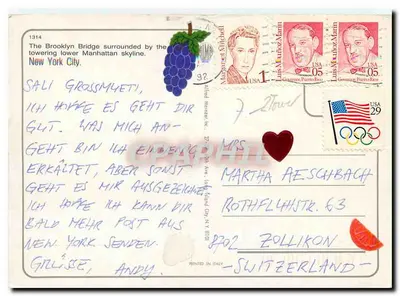 1314
The Brooklyn Bridge surrounded by the
towering lower Manhattan skyline.
New York City.
SALI GROSSMUETI,
ICH HOFFE ES GEHT DIR
GUT. WAS MICH AN-
GEHT BIN ICH
ERKÄLTET, ABER SONST
GEHT ES MIR AUSGEZEICHNET
ICH HOFFE ICH KANN DIR
BALD MEHR POST AUS
NEW YORK SENDEN.
GRÜSSE, ANDY.
92
Margaret Mitchell
USA
1
Luis Muñoz Marín
USA
05
Governor, Puerto Rico
Luis Muñoz Marín
USA
05
Governor, Puerto Rico
USA
29
MRS
MARTHA AESCHBACH
ROTHFLUHSTR. 63
8702 ZOLLIKON
-SWITZERLAND-
PRINTED IN ITALY